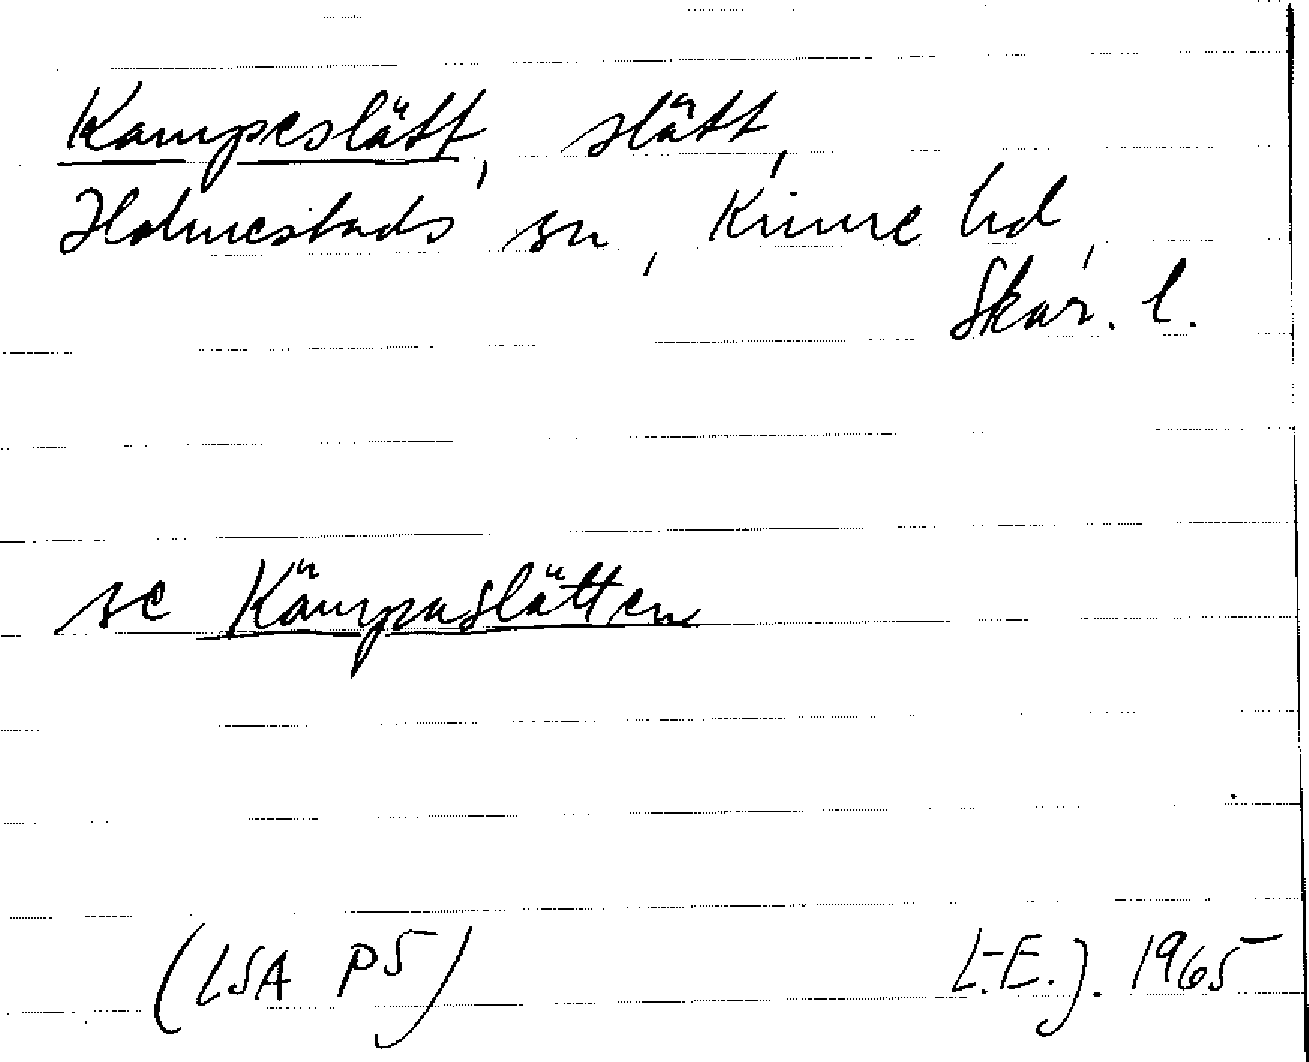 Kampeslätt, slätt,
Holmestads sn, Kinne hd,
Skar. l.
se Kämpaslätten
(LSA P5)
L.E.J. 1965